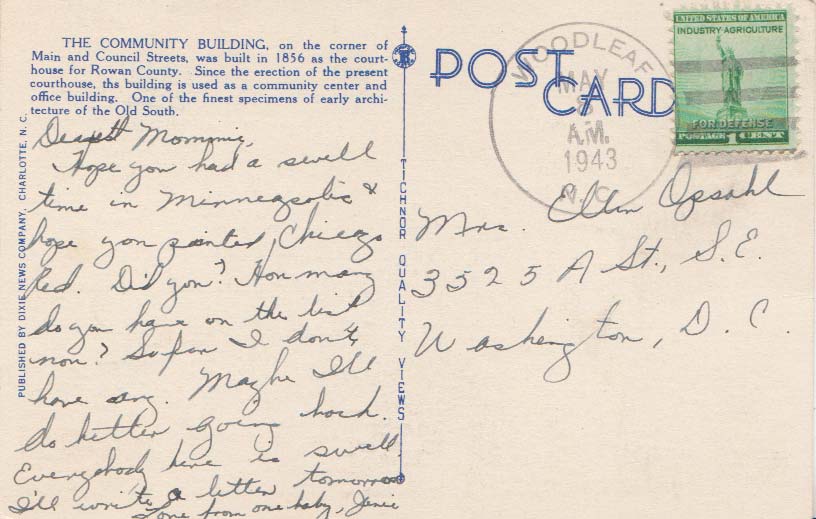 THE COMMUNITY BUILDING, on the corner of
Main and Council Streets, was built in 1856 as the court-
house for Rowan County. Since the erection of the present
courthouse, ths building is used as a community center and
office building. One of the finest specimens of early archi-
tecture of the Old South.
PUBLISHED BY DIXIE NEWS COMPANY, CHARLOTTE, N. C.
Dearest Mommie,
Hope you had a swell
time in Minneapolis &
hope you painted Chicago
Red. Did you? How many
do you have on the list
now? So far I don't
have any. Maybe I'll
do better going back.
Everybody here is swell.
I'll write a letter tomorrow
Love from one baby, Janie
TICHNOR QUALITY VIEWS
POST CARD
WOODLEAF
MAY
8
A.M.
1943
N.C.
UNITED STATES OF AMERICA
INDUSTRY AGRICULTURE
FOR DEFENSE
POSTAGE 1 CENT
Mrs. Ellen Opsahl
3525 A St., S.E.
Washington, D.C.